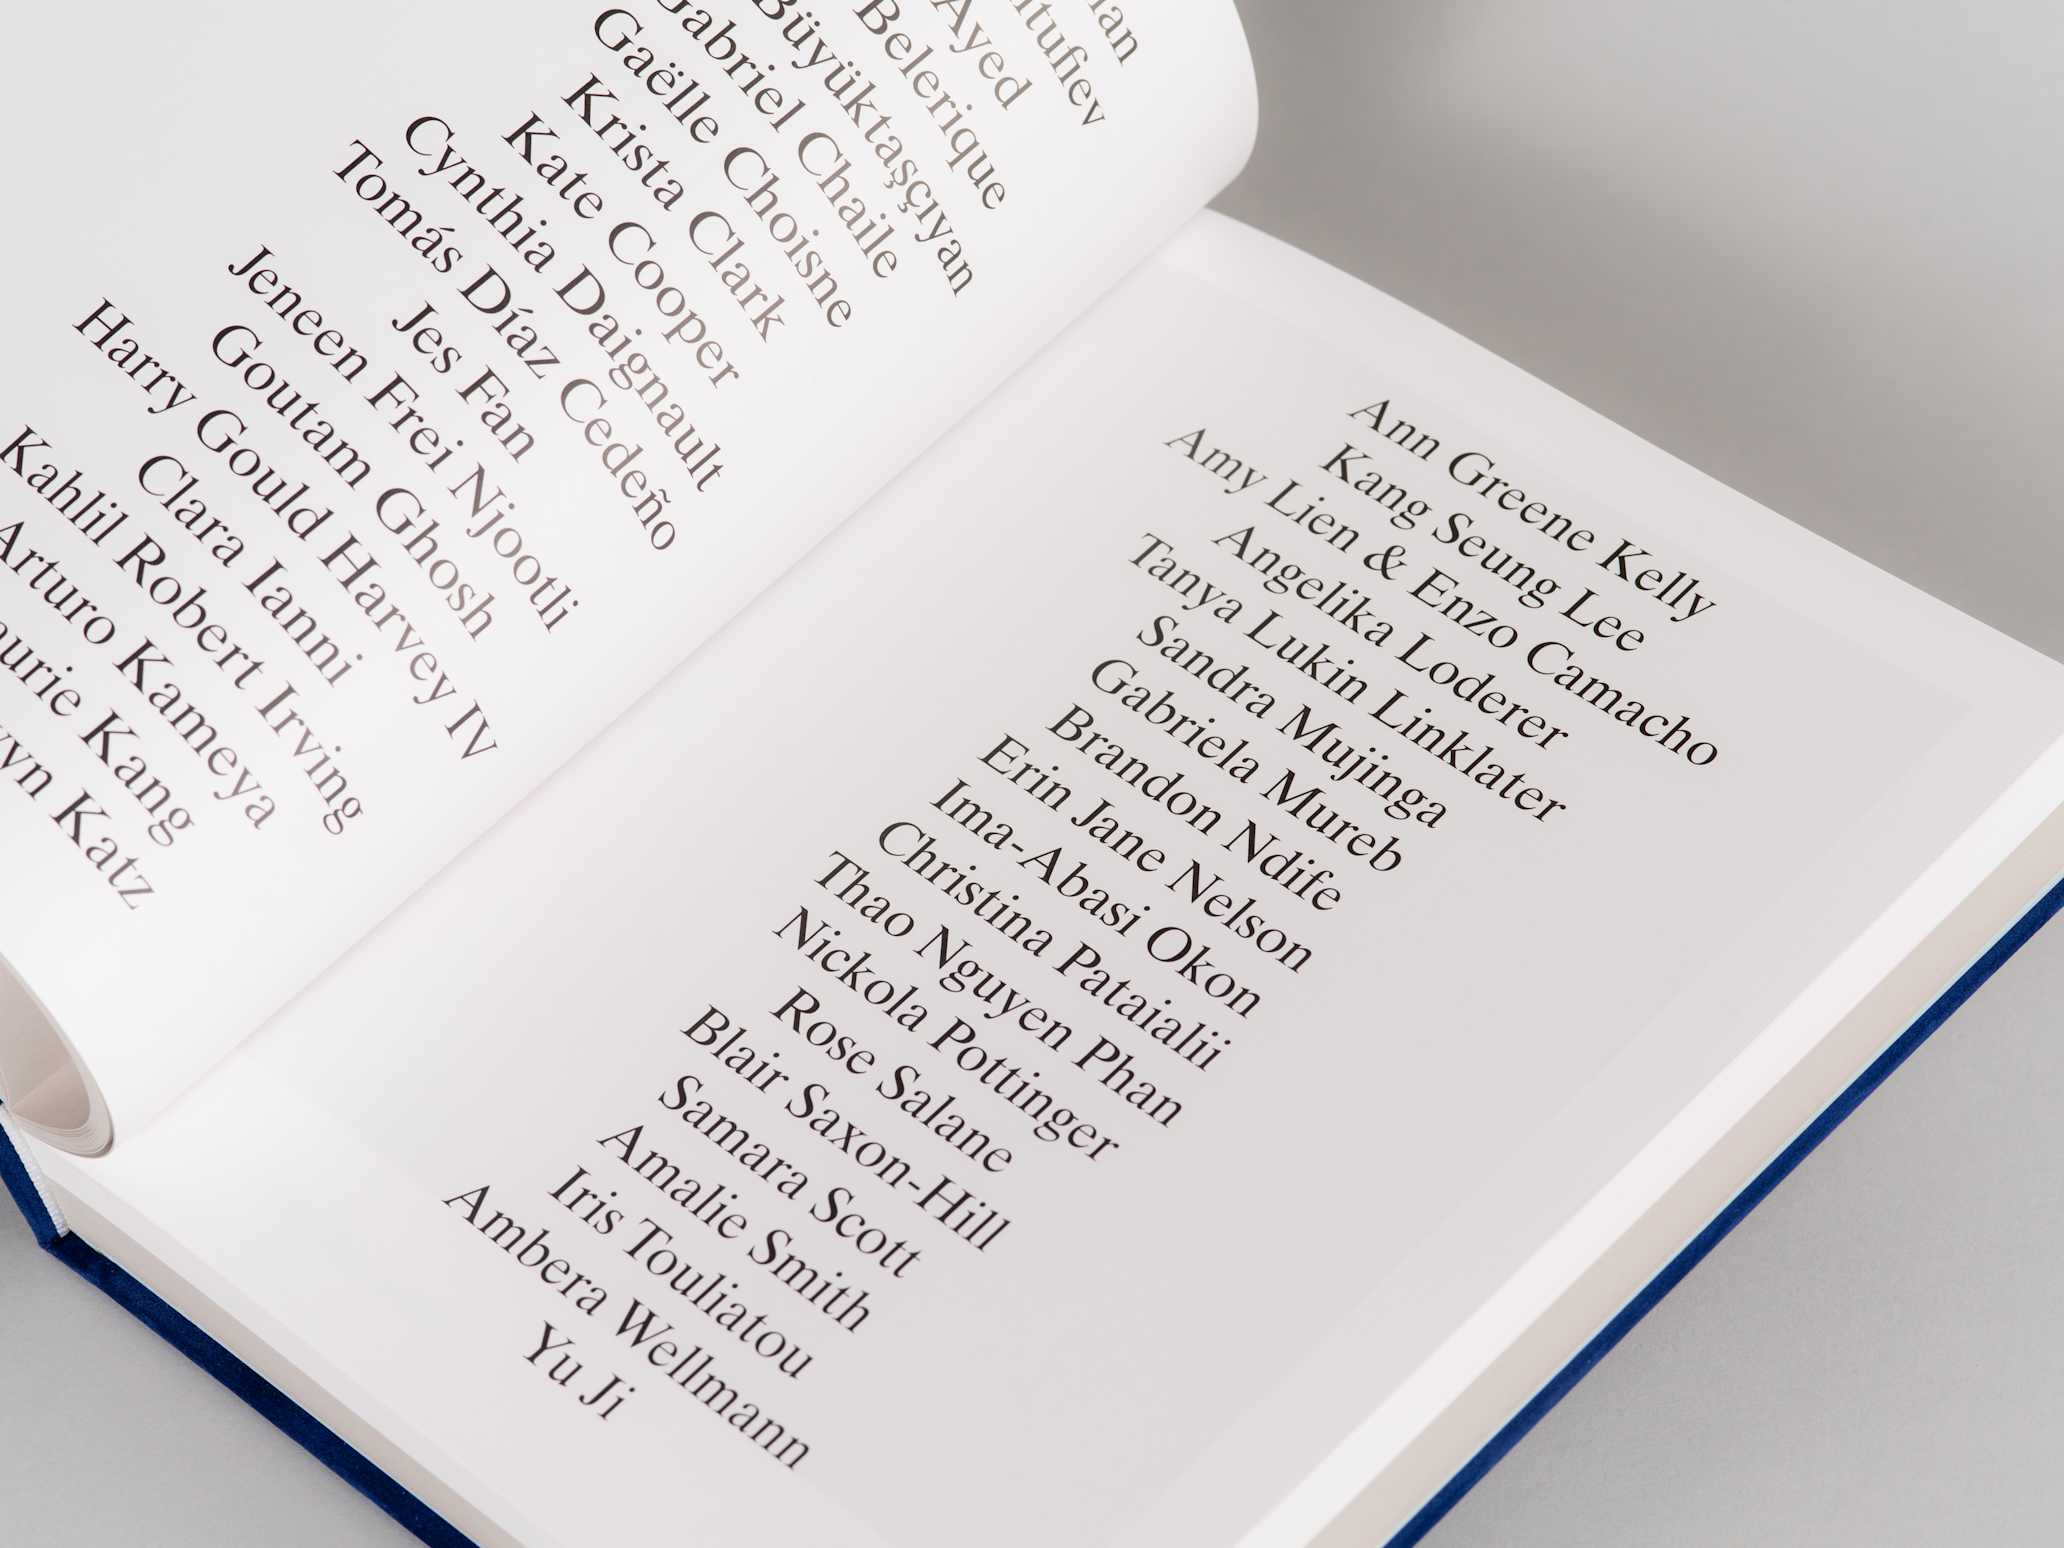 Ayed
Belerique
Büyüktaşçıyan
Gabriel Chaile
Gaëlle Choisne
Krista Clark
Kate Cooper
Cynthia Daignault
Tomás Díaz Cedeño
Jes Fan
Jeneen Frei Njootli
Goutam Ghosh
Harry Gould Harvey IV
Clara Ianni
Kahlil Robert Irving
Arturo Kameya
Kang
Katz
Ann Greene Kelly
Kang Seung Lee
Amy Lien & Enzo Camacho
Angelika Loderer
Tanya Lukin Linklater
Sandra Mujinga
Gabriela Mureb
Brandon Ndife
Erin Jane Nelson
Ima-Abasi Okon
Christina Pataialii
Thao Nguyen Phan
Nickola Pottinger
Rose Salane
Blair Saxon-Hill
Samara Scott
Amalie Smith
Iris Touliatou
Ambera Wellmann
Yu Ji